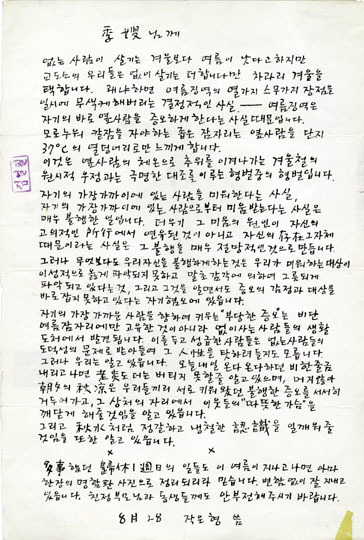 季嫂님께
없는 사람이 살기는 겨울보다 여름이 낫다고하지만
교도소의 우리들은 없이 살기는 더합니다만 차라리 겨울을
택합니다. 왜냐하면 여름징역의 열가지 스무가지 장점을
일시에 무색케해버리는 결정적인 사실. ── 여름징역은
자기의 바로 옆사람을 증오하게 한다는 사실 때문입니다.
모로누워 칼잠을 자야하는 좁은 잠자리는 옆사람을 단지
37℃의 열덩어리로만 느끼게 합니다.
이것은 옆사람의 체온으로 추위를 이겨나가는 겨울철의
원시적 우정과는 극명한 대조를 이루는 형벌중의 형벌입니다.
자기의 가장 가까이에 있는 사람을 미워한다는 사실,
자기의 가장 가까이에 있는 사람으로부터 미움받는다는 사실은
매우 불행한 일입니다. 더우기 그 미움의 원인이 자신의
고의적인 所行에서 연유된것이 아니고 자신의 存在 그자체
때문이라는 사실은 그 불행을 매우 절망적인것으로 만듭니다.
그러나 무엇보다도 우리자신을 불행하게하는것은 우리가 미워하는대상이
이성적으로 옳게 파악되지 못하고 말초감각에 의하여 그릇되게
파악되고 있다는것, 그리고 그것을 알면서도 증오의 감정과 대상을
바로잡지 못하고 있다는 자기혐오에 있습니다.
자기의 가장 가까운 사람을 향하여 키우는 "부당한 증오"는 비단
여름잠자리에만 고유한것이 아니라 없이사는 사람들의 생활
도처에서 발견됩니다. 이를 두고 성급한 사람들은 없는 사람들의
도덕성의 문제로 받아들여 그 人性을 탓하려들지도 모릅니다.
그러나 우리는 알고 있습니다. 오늘내일 온다 온다하던 비 한줄금
내리고나면 老炎도 더는 버티지 못할줄 알고있으며, 머지않아
朝夕의 秋凉은 우리들끼리 서로 키워왔던 불행한 증오를 서서히
거두어가고, 그 상처의 자리에서 이웃들의 "따뜻한 가슴"을
깨닫게 해줄것임을 알고 있습니다.
그리고 秋水처럼 정갈하고 냉철한 認識을 일깨워줄
것임을 또한 알고 있습니다.
× ×
多事했던 歸休1週日의 일들도 이 여름이 지나고나면 아마
한장의 명함판 사진으로 정리되리라 믿습니다. 변함없이 잘 지내고
있습니다. 친정부모님과 동생들께도 안부전해주시기 바랍니다.
8月 28 작은형 씀